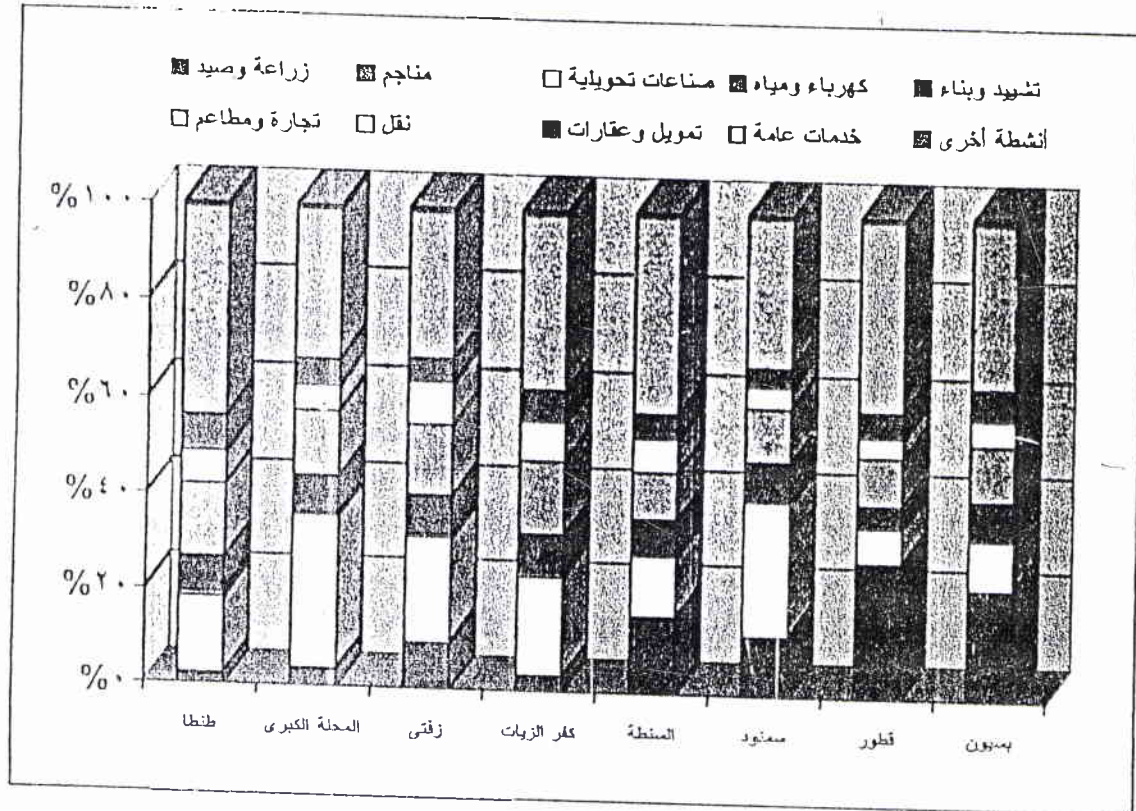 زراعة وصيد مناجم صناعات تحويلية كهرباء ومياه تشييد وبناء
تجارة ومطاعم نقل تمويل وعقارات خدمات عامة أنشطة أخرى
%١٠٠
%٨٠
%٦٠
%٤٠
%٢٠
%٠
طنطا المحلة الكبرى زفتى كفر الزيات السنطة سمنود قطور بسيون